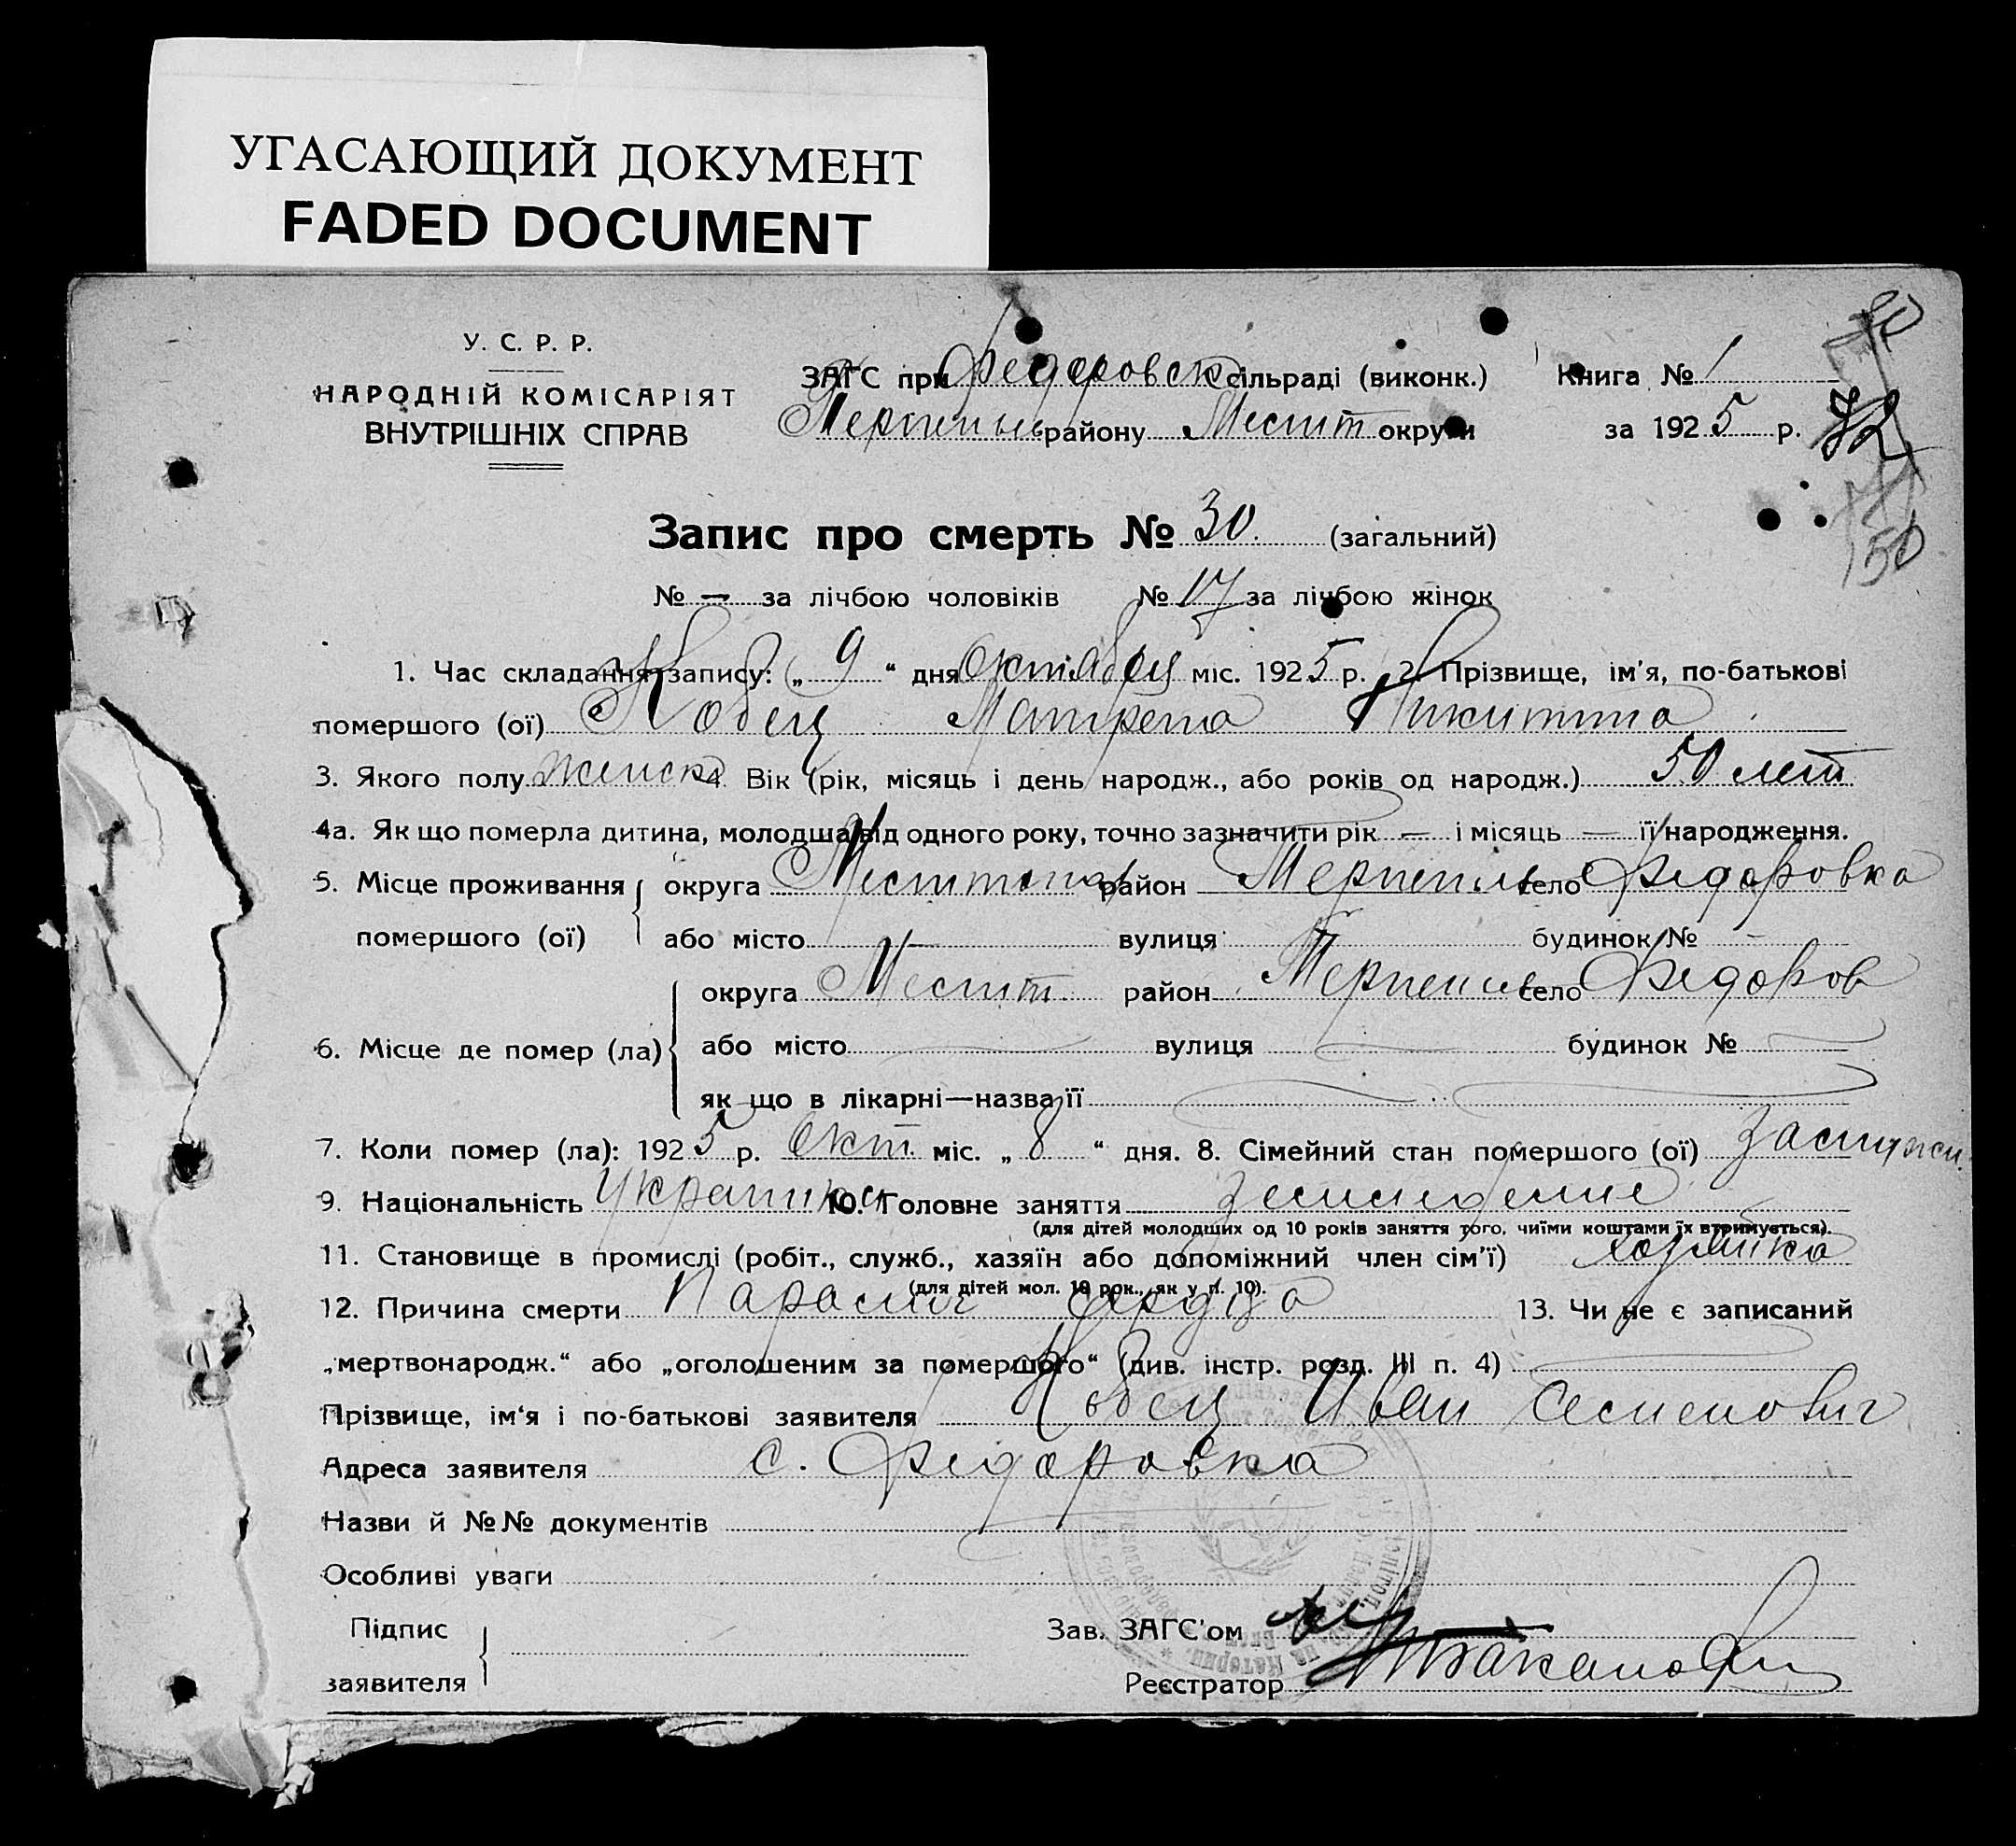 УГАСАЮЩИЙ ДОКУМЕНТ
FADED DOCUMENT
У. С. Р. Р.
НАРОДНІЙ КОМІСАРІЯТ
ВНУТРІШНІХ СПРАВ
ЗАГС при Федоровск сільраді (виконк.)
району Мелит округи
Книга № 1
за 1925 р.
72
150
Запис про смерть № 30. (загальний)
№ — за лічбою чоловіків № 17 за лічбою жінок
1. Час складання запису: „ 9 “ дня Октября міс. 1925 р. 2. Прізвище, ім'я, по-батькові
помершого (ої) Кобец Матрена Никитина
3. Якого полу женск 4. Вік (рік, місяць і день народж., або років од народж.) 50 лет
4а. Як що померла дитина, молодша від одного року, точно зазначити рік — і місяць — її народження.
5. Місце проживання помершого (ої) { округа Мелитопол район Терпенье село Федоровка
або місто — вулиця будинок № —
6. Місце де помер (ла) { округа Мелит. район Терпенье село Федоров
або місто — вулиця — будинок № —
як що в лікарні—назва її —
7. Коли помер (ла): 1925 р. Окт міс. „ 8 “ дня. 8. Сімейний стан помершого (ої) замужн.
9. Національність Украинка 10. Головне заняття земледелие
(для дітей молодших од 10 років заняття того, чиїми коштами їх втримується).
11. Становище в промислі (робіт., служб., хазяїн або допоміжний член сім'ї) хозяйка
(для дітей мол. 10 рок., як у п. 10).
12. Причина смерти Паралич сердца 13. Чи не є записаний
„мертвонародж.“ або „оголошеним за помершого“ (див. інстр. розд. III п. 4) —
Прізвище, ім'я і по-батькові заявителя Кобец Иван Семенович
Адреса заявителя с. Федоровка
Назви й №№ документів —
Особливі уваги
Підпис заявителя {
Зав. ЗАГС'ом
Реєстратор